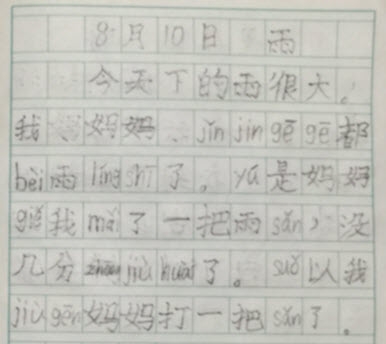 8月10日 雨
今天下的雨很大。
我、妈妈、jīn jin gē gē都
bèi雨 líng shī了。yú是妈妈
giě我mǎi了一把雨sǎn,没
几分zhōng jiù huài了。suǒ以我
jiù gēn妈妈打一把sǎn了。